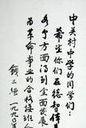 中关村中学的同学们：
希望你们在德智体
各个方面得到全面发展，
为革命事业的合格接班人
钱
一九九〇